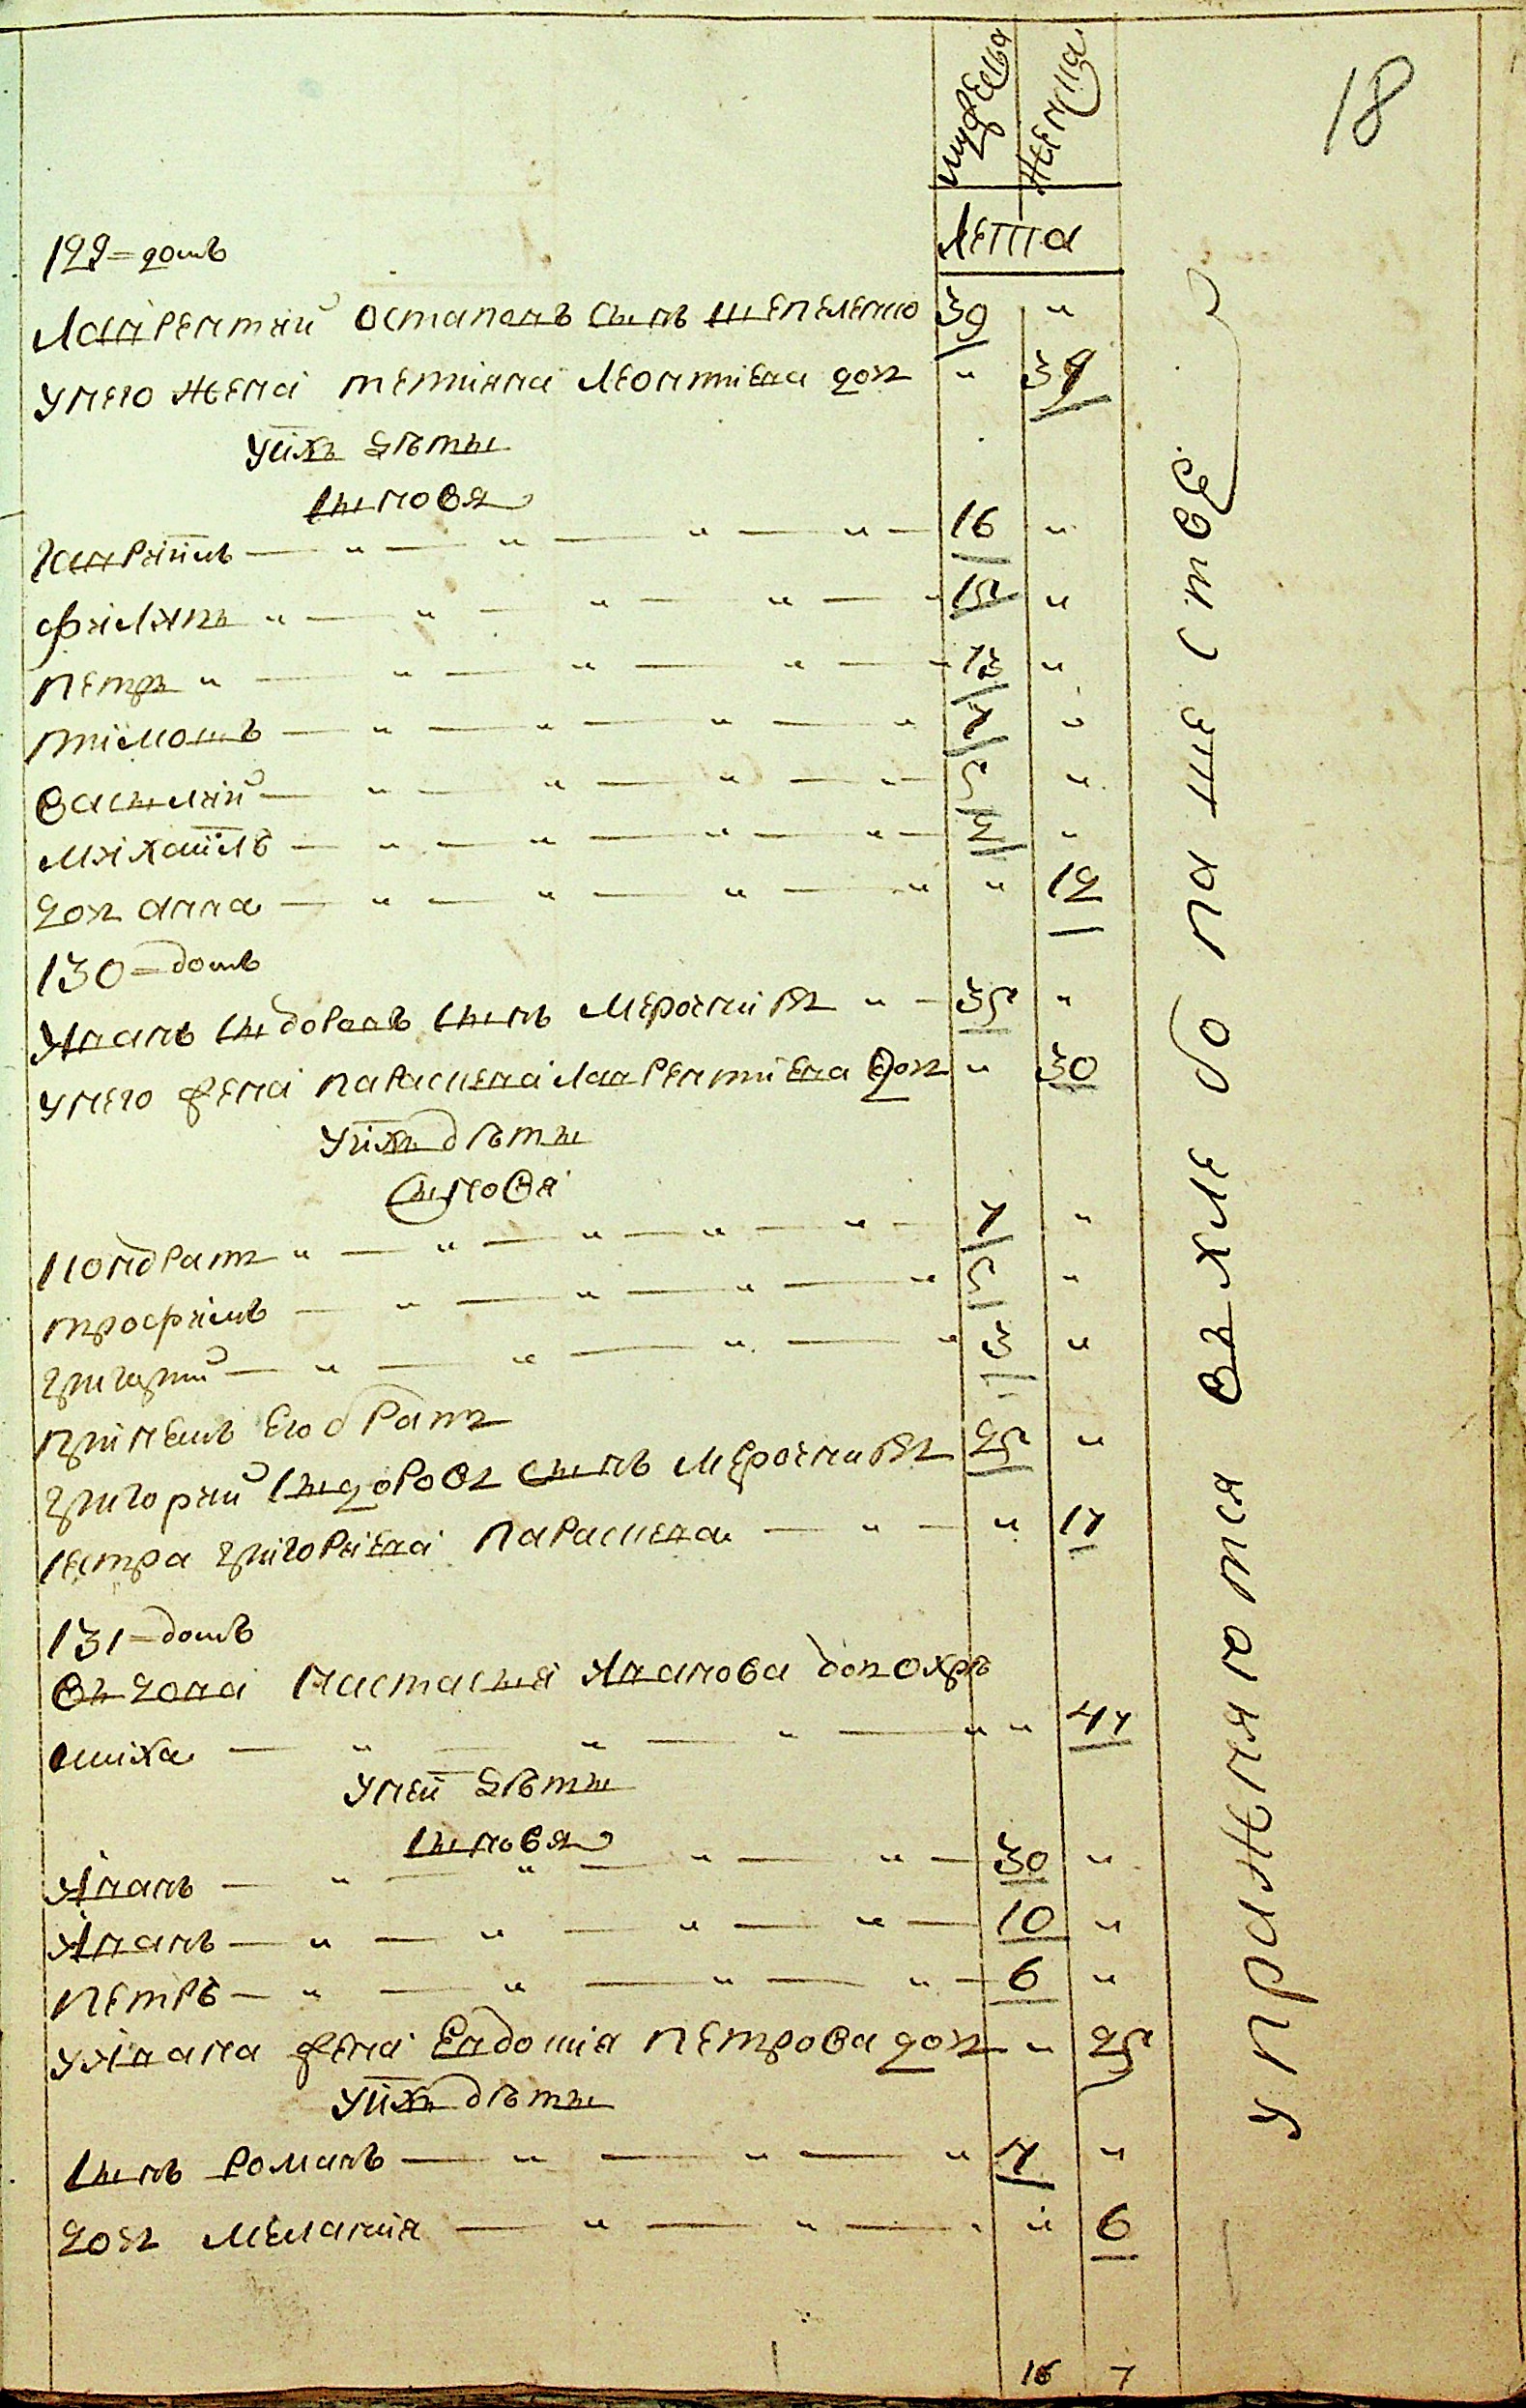 18
мужеска женска
Лета
129 = домъ
Лаврентий Остаповъ сынъ Шепеленко 39 "
У него жена Тетияна Леонтиева доч " 39
У них дѣты
сыновя
Гаврiилъ 16 "
Филипъ " 15 "
Петръ " 13 "
Тiмошъ 7 "
Васылий 5 "
Михаилъ 3 "
доч Анна " 12
130 = домъ
Иванъ Сыдоровъ сынъ " 35 "
У него жена Параскева Лаврентиева доч " 30
У них дѣты
сыновя
Кондратъ " 7 "
Трофимъ 5 "
Григорий 3 "
Приемъ его братъ
Григорий Сыдоровъ сынъ 25 "
сестра Григориева Параскева " 17
131 = домъ
Въдова Настасыя Иванова доч Охрѣ
миха " 47
У ней дѣты
сыновя
Иванъ 30 "
Иванъ 10 "
Петръ 6 "
У Ивана жена Евдокия Петрова доч " 25
У них дѣты
сынъ Романъ 7 "
доч Мелания " 6
16 7
упражняются въ хлебопашестве